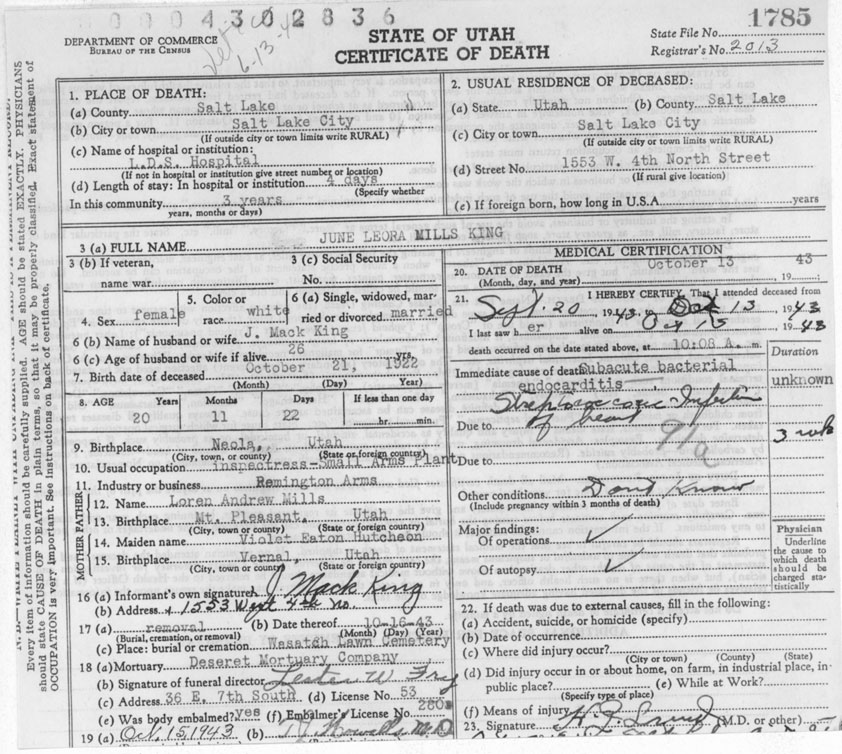 0004302836
1785
DEPARTMENT OF COMMERCE
BUREAU OF THE CENSUS
6-13-4
STATE OF UTAH
CERTIFICATE OF DEATH
State File No.
Registrar's No. 2013
1. PLACE OF DEATH:
(a) County Salt Lake
(b) City or town Salt Lake City
(If outside city or town limits write RURAL)
(c) Name of hospital or institution:
L.D.S. Hospital
(If not in hospital or institution give street number or location)
(d) Length of stay: In hospital or institution 4 days
(Specify whether
In this community 3 years
years, months or days)
2. USUAL RESIDENCE OF DECEASED:
(a) State Utah (b) County Salt Lake
(c) City or town Salt Lake City
(If outside city or town limits write RURAL)
(d) Street No. 1553 W. 4th North Street
(If rural give location)
(e) If foreign born, how long in U.S.A. years
3 (a) FULL NAME JUNE LEORA MILLS KING
3 (b) If veteran,
name war
3 (c) Social Security
No.
4. Sex female
5. Color or
race white
6 (a) Single, widowed, mar-
ried or divorced married
6 (b) Name of husband or wife J. Mack King
6 (c) Age of husband or wife if alive 26 yrs.
7. Birth date of deceased October 21, 1922
(Month) (Day) Year)
8. AGE Years Months Days If less than one day
20 11 22 hr. min.
9. Birthplace Neola, Utah
(City, town, or county) (State or foreign country)
10. Usual occupation inspectress-Small Arms Plant
11. Industry or business Remington Arms
MOTHER FATHER
12. Name Loren Andrew Mills
13. Birthplace Mt. Pleasant, Utah
(City, town, or county) (State or foreign country)
14. Maiden name Violet Eaton Hutcheon
15. Birthplace Vernal, Utah
(City, town, or county) (State or foreign country)
16 (a) Informant's own signature J Mack King
(b) Address 1553 West 4th no.
17 (a) removal (b) Date thereof 10-16-43
(Burial, cremation, or removal) (Month) (Day) (Year)
(c) Place: burial or cremation Wasatch Lawn Cemetery
18 (a) Mortuary Deseret Mortuary Company
(b) Signature of funeral director Lester W Fry
(c) Address 36 E. 7th South (d) License No. 53
(e) Was body embalmed? yes (f) Embalmer's License No.
19 (a) Oct. 15, 1943 (b) M.D
MEDICAL CERTIFICATION
20. DATE OF DEATH October 13 43
(Month, day, and year) 19
21. I HEREBY CERTIFY, That I attended deceased from
Sept. 20 1943, to Oct 13 1943
I last saw h er alive on Oct 13, 1943
death occurred on the date stated above, at 10:08 A. m.
Duration
Immediate cause of death Subacute bacterial
endocarditis unknown
Streptococcic Infection
Due to of heart 3 wk
91a
Due to
Other conditions Dont Know
(Include pregnancy within 3 months of death)
Major findings:
Of operations ✓
Of autopsy ✓
Physician
Underline
the cause to
which death
should be
charged sta-
tistically
22. If death was due to external causes, fill in the following:
(a) Accident, suicide, or homicide (specify)
(b) Date of occurrence
(c) Where did injury occur?
(City or town) (County) (State)
(d) Did injury occur in or about home, on farm, in industrial place, in
public place? (e) While at Work?
(Specify type of place)
(f) Means of injury
23. Signature (M.D. or other)
Every item of information should be carefully supplied. AGE should be stated EXACTLY. PHYSICIANS
should state CAUSE OF DEATH in plain terms, so that it may be properly classified. Exact statement of
OCCUPATION is very important. See instructions on back of certificate.